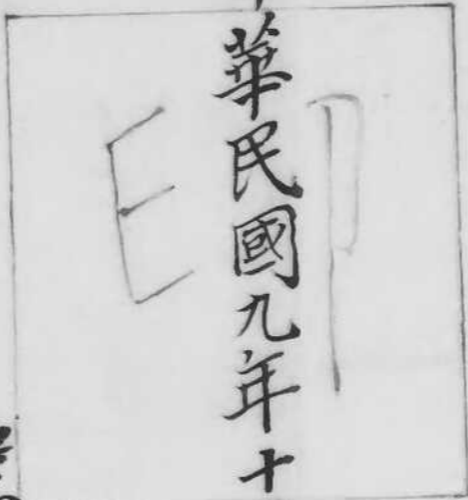 華民國九年十
印